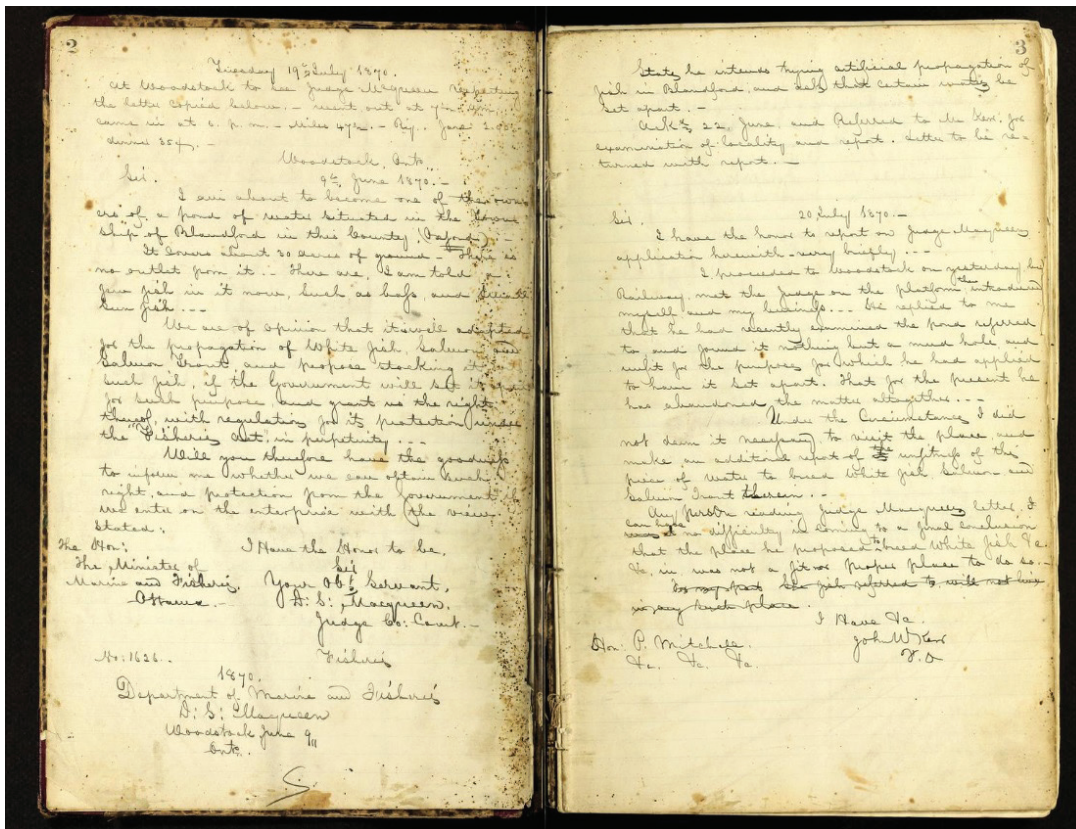 2
Tuesday 19th July 1870.
At Woodstock to see Judge Macqueen respecting
the letter copied below. - went out at 7
came in at 6. p. m. - Miles 47 - Ry. fare
dinner 35¢. -
Woodstock, Ont.
9th June 1870. -
Sir.
I am about to become one of the own
ers of a pond of water situated in the Town
ship of Blandford in this County (Oxford) -
It covers about 30 acres of ground - There is
no outlet from it - There are, I am told a
few fish in it now, such as bass, and
Sun fish. - - -
We are of opinion that it is well adapted
for the propagation of White fish, Salmon and
Salmon Trout and propose stocking it
such fish, if the Government will set it
for such purpose and grant us the right
thereof, with regulation for its protection under
the "Fisheries Act", in perpetuity. - - -
Will you therefore have the goodness
to inform me whether we can obtain such
right, and protection from the Government if
we enter on the enterprise with the views
Stated:
The Hon: I Have the Honor to be,
The Minister of Sir
Marine and Fisheries Your Obt Servant,
Ottawa. D: S: Macqueen.
Judge Co: Court. -
No: 1626. Fisheries
1870.
Department of Marine and Fisheries
D: S: Macqueen
Woodstock June 9
Ont.
3
States he intends trying artificial propagation of
fish in Blandford, and asks that certain waters be
set apart. -
Ackd 22 June and Referred to Mr Kerr, for
examination of locality and report. Letter to be re-
turned with report. -
Sir 20 July 1870. -
I have the honor to report on Judge Macqueens
application herewith - very briefly. - - -
I proceeded to Woodstock on yesterday, by
Railway, met the Judge on the platform, introduced
myself and my business. - - He replied to me
that he had recently examined the pond referred
to, and found it nothing but a mud hole and
unfit for the purposes for which he had applied
to have it set apart. That for the present he
has abandoned the matter altogether. - - -
Under the Circumstances I did
not deem it necessary to visit the place, and
make an additional report of the unfitness of this
piece of water to breed White fish, Salmon and
Salmon Trout therein. - -
Any person reading Judge Macqueens letter, I
can have no difficulty in coming to a final conclusion
that the place he proposed to breed White fish &c.
&c. in, was not a fit or proper place to do so. -
the fish referred to will not live
in any such place.
I Have &c.
Hon: P. Mitchell John W Kerr
&c. &c. &c. F. O